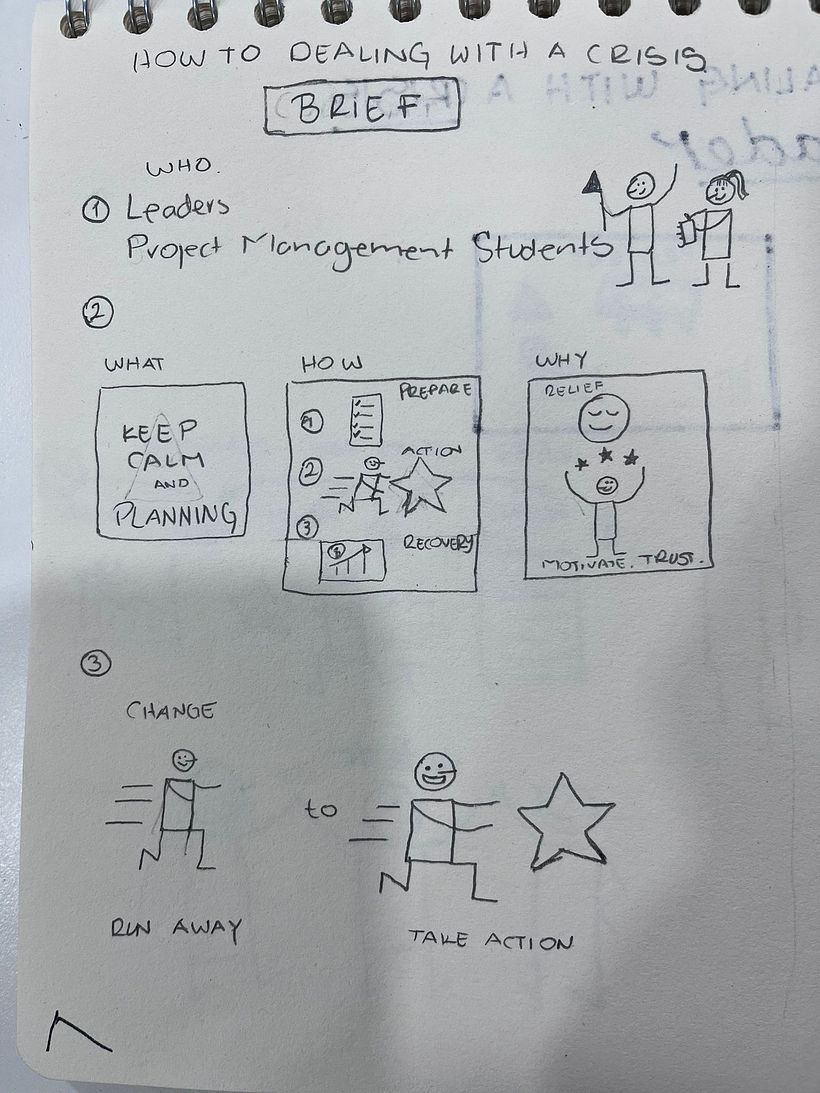 HOW TO DEALING WITH A CRISIS
BRIEF
WHO.
1 Leaders
Project Management Students
2
WHAT
KEEP
CALM
AND
PLANNING
HOW
PREPARE
1
ACTION
2
3
RECOVERY
$
WHY
RELIEF
MOTIVATE. TRUST.
3
CHANGE
to
RUN AWAY
TAKE ACTION